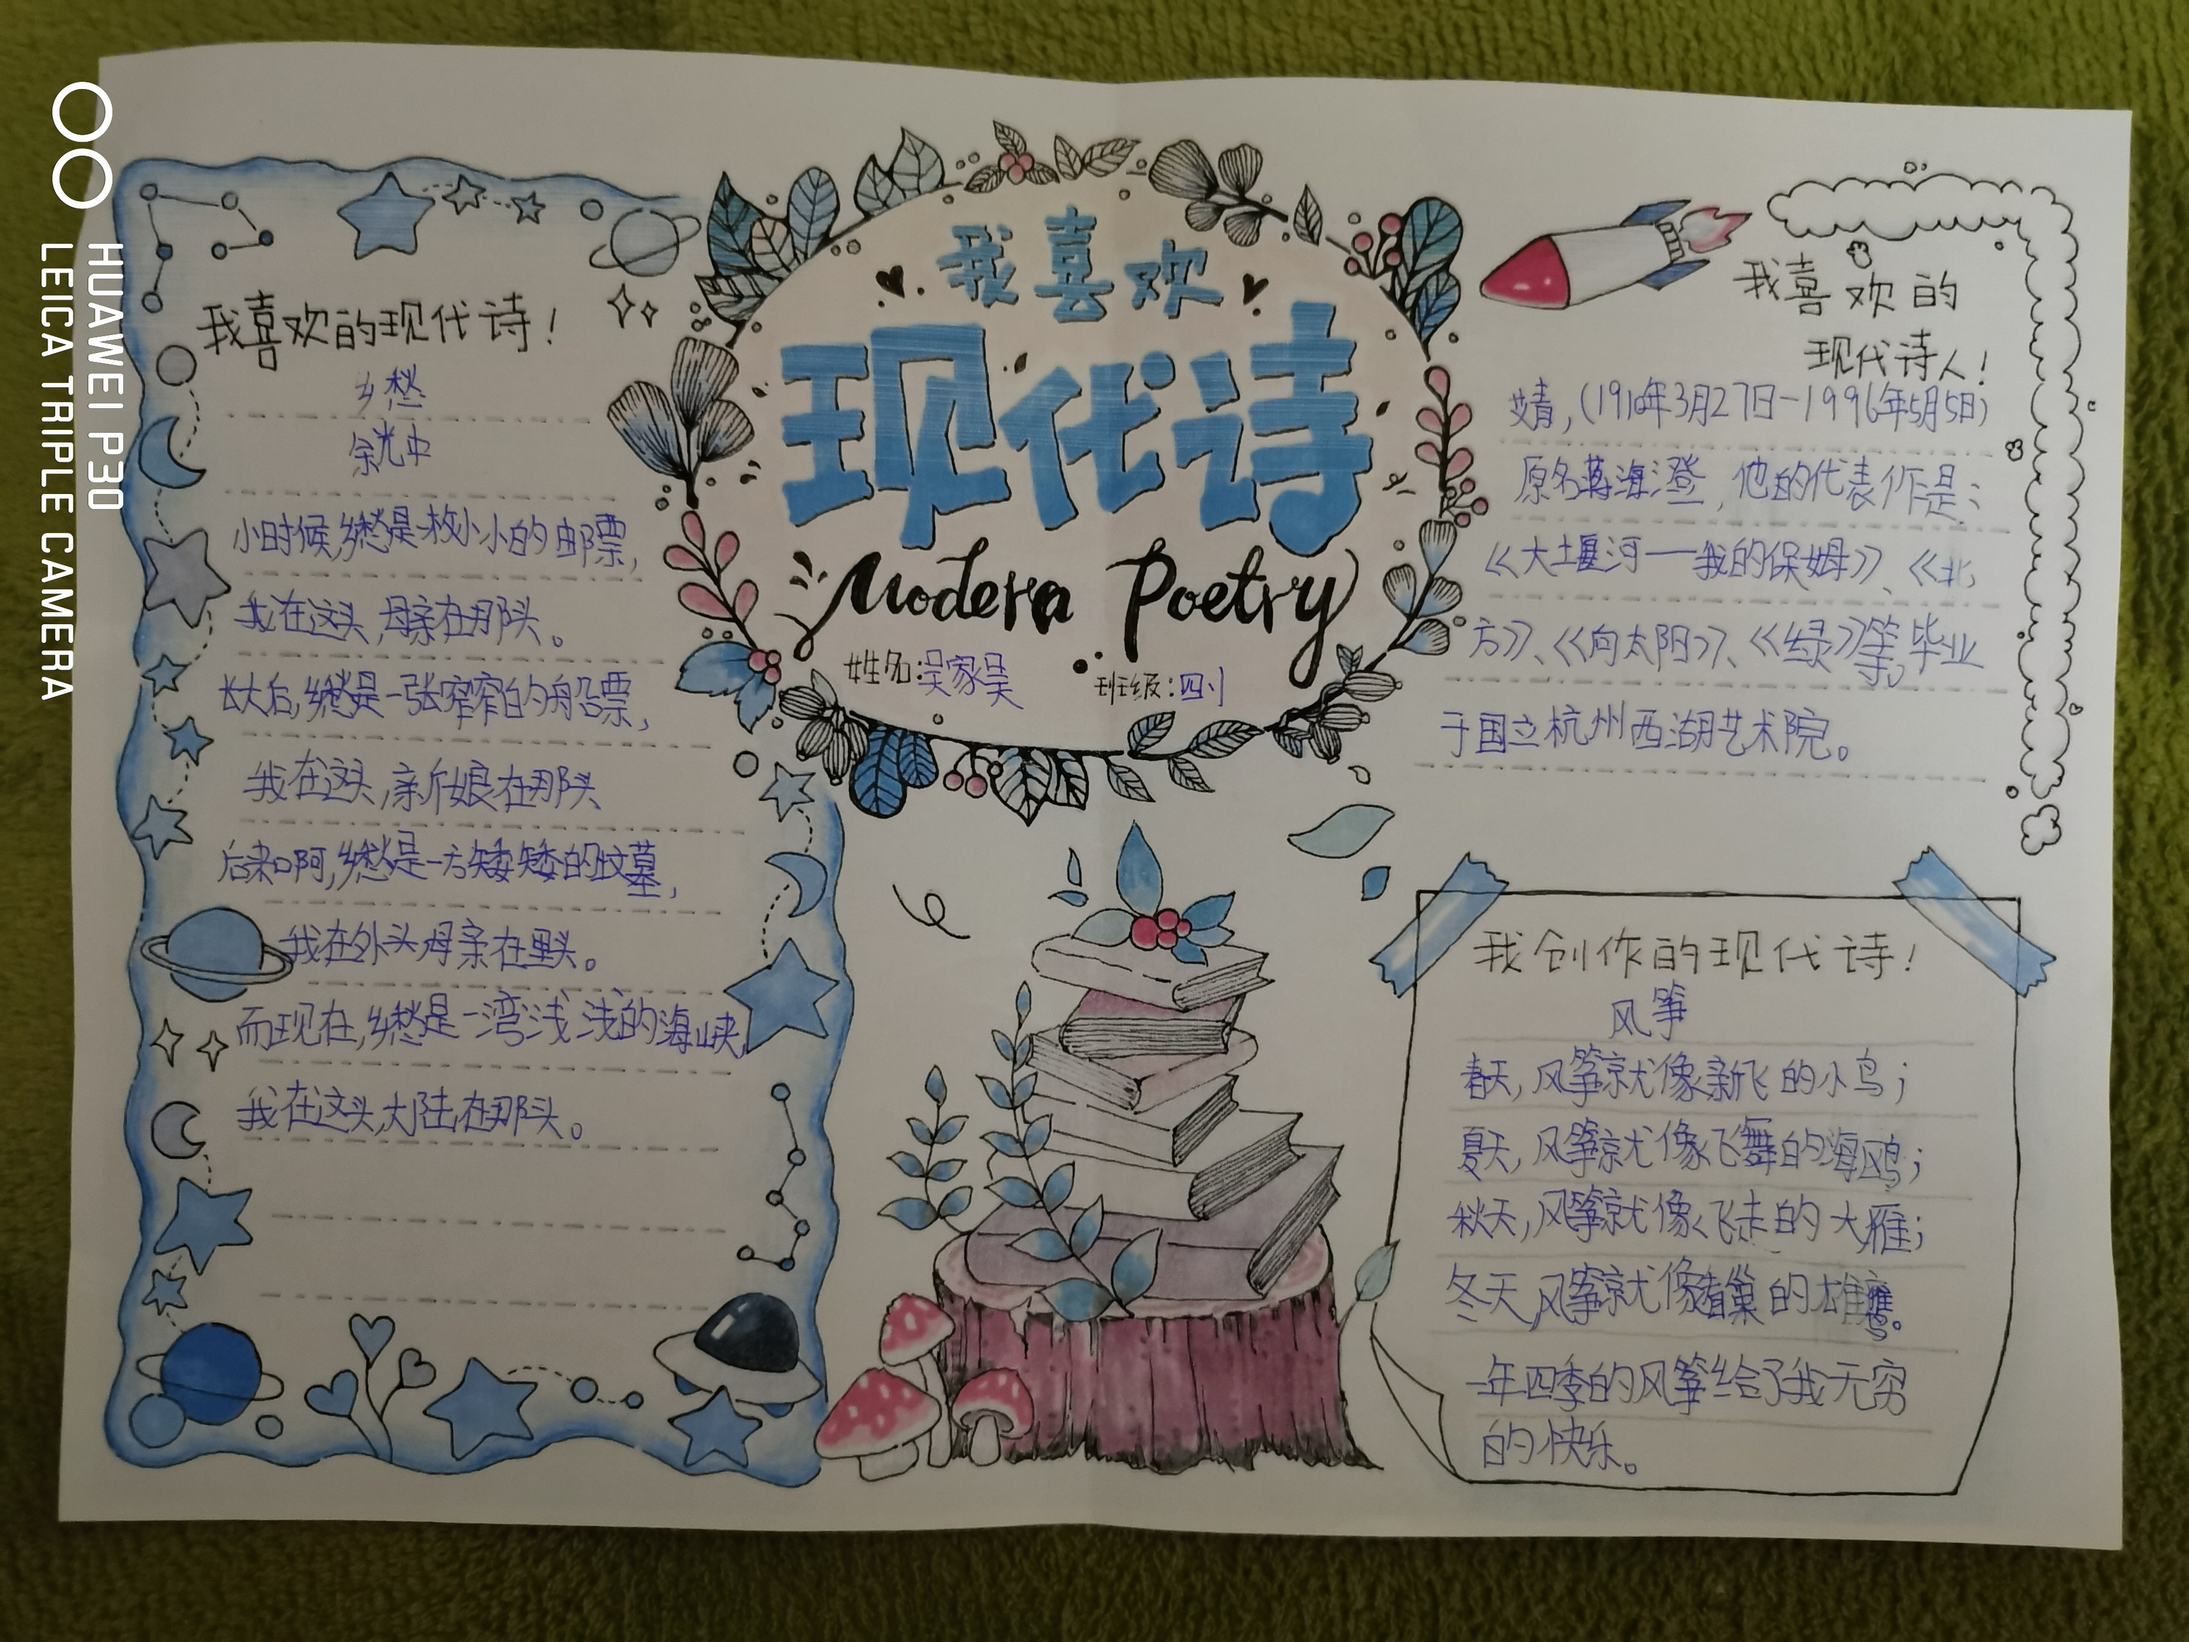 我喜欢的现代诗！
乡愁
余光中
小时候,乡愁是一枚小小的邮票,
我在这头,母亲在那头。
长大后,乡愁是一张窄窄的船票,
我在这头,新娘在那头
后来啊,乡愁是一方矮矮的坟墓,
我在外头母亲在里头。
而现在,乡愁是一湾浅浅的海峡,
我在这头,大陆在那头。
我喜欢
现代诗
Modern Poetry
姓名:吴家昊 班级:四
我喜欢的
现代诗人！
艾青,(1910年3月27日-1996年5月5日)
原名蒋海澄,他的代表作是:
《大堰河——我的保姆》、《北
方》、《向太阳》、《绿》等,毕业
于国立杭州西湖艺术院。
我创作的现代诗！
风筝
春天,风筝就像新飞的小鸟;
夏天,风筝就像飞舞的海鸥;
秋天,风筝就像飞走的大雁;
冬天,风筝就像着巢的雄鹰。
一年四季的风筝给了我无穷
的快乐。
HUAWEI P30
LEICA TRIPLE CAMERA